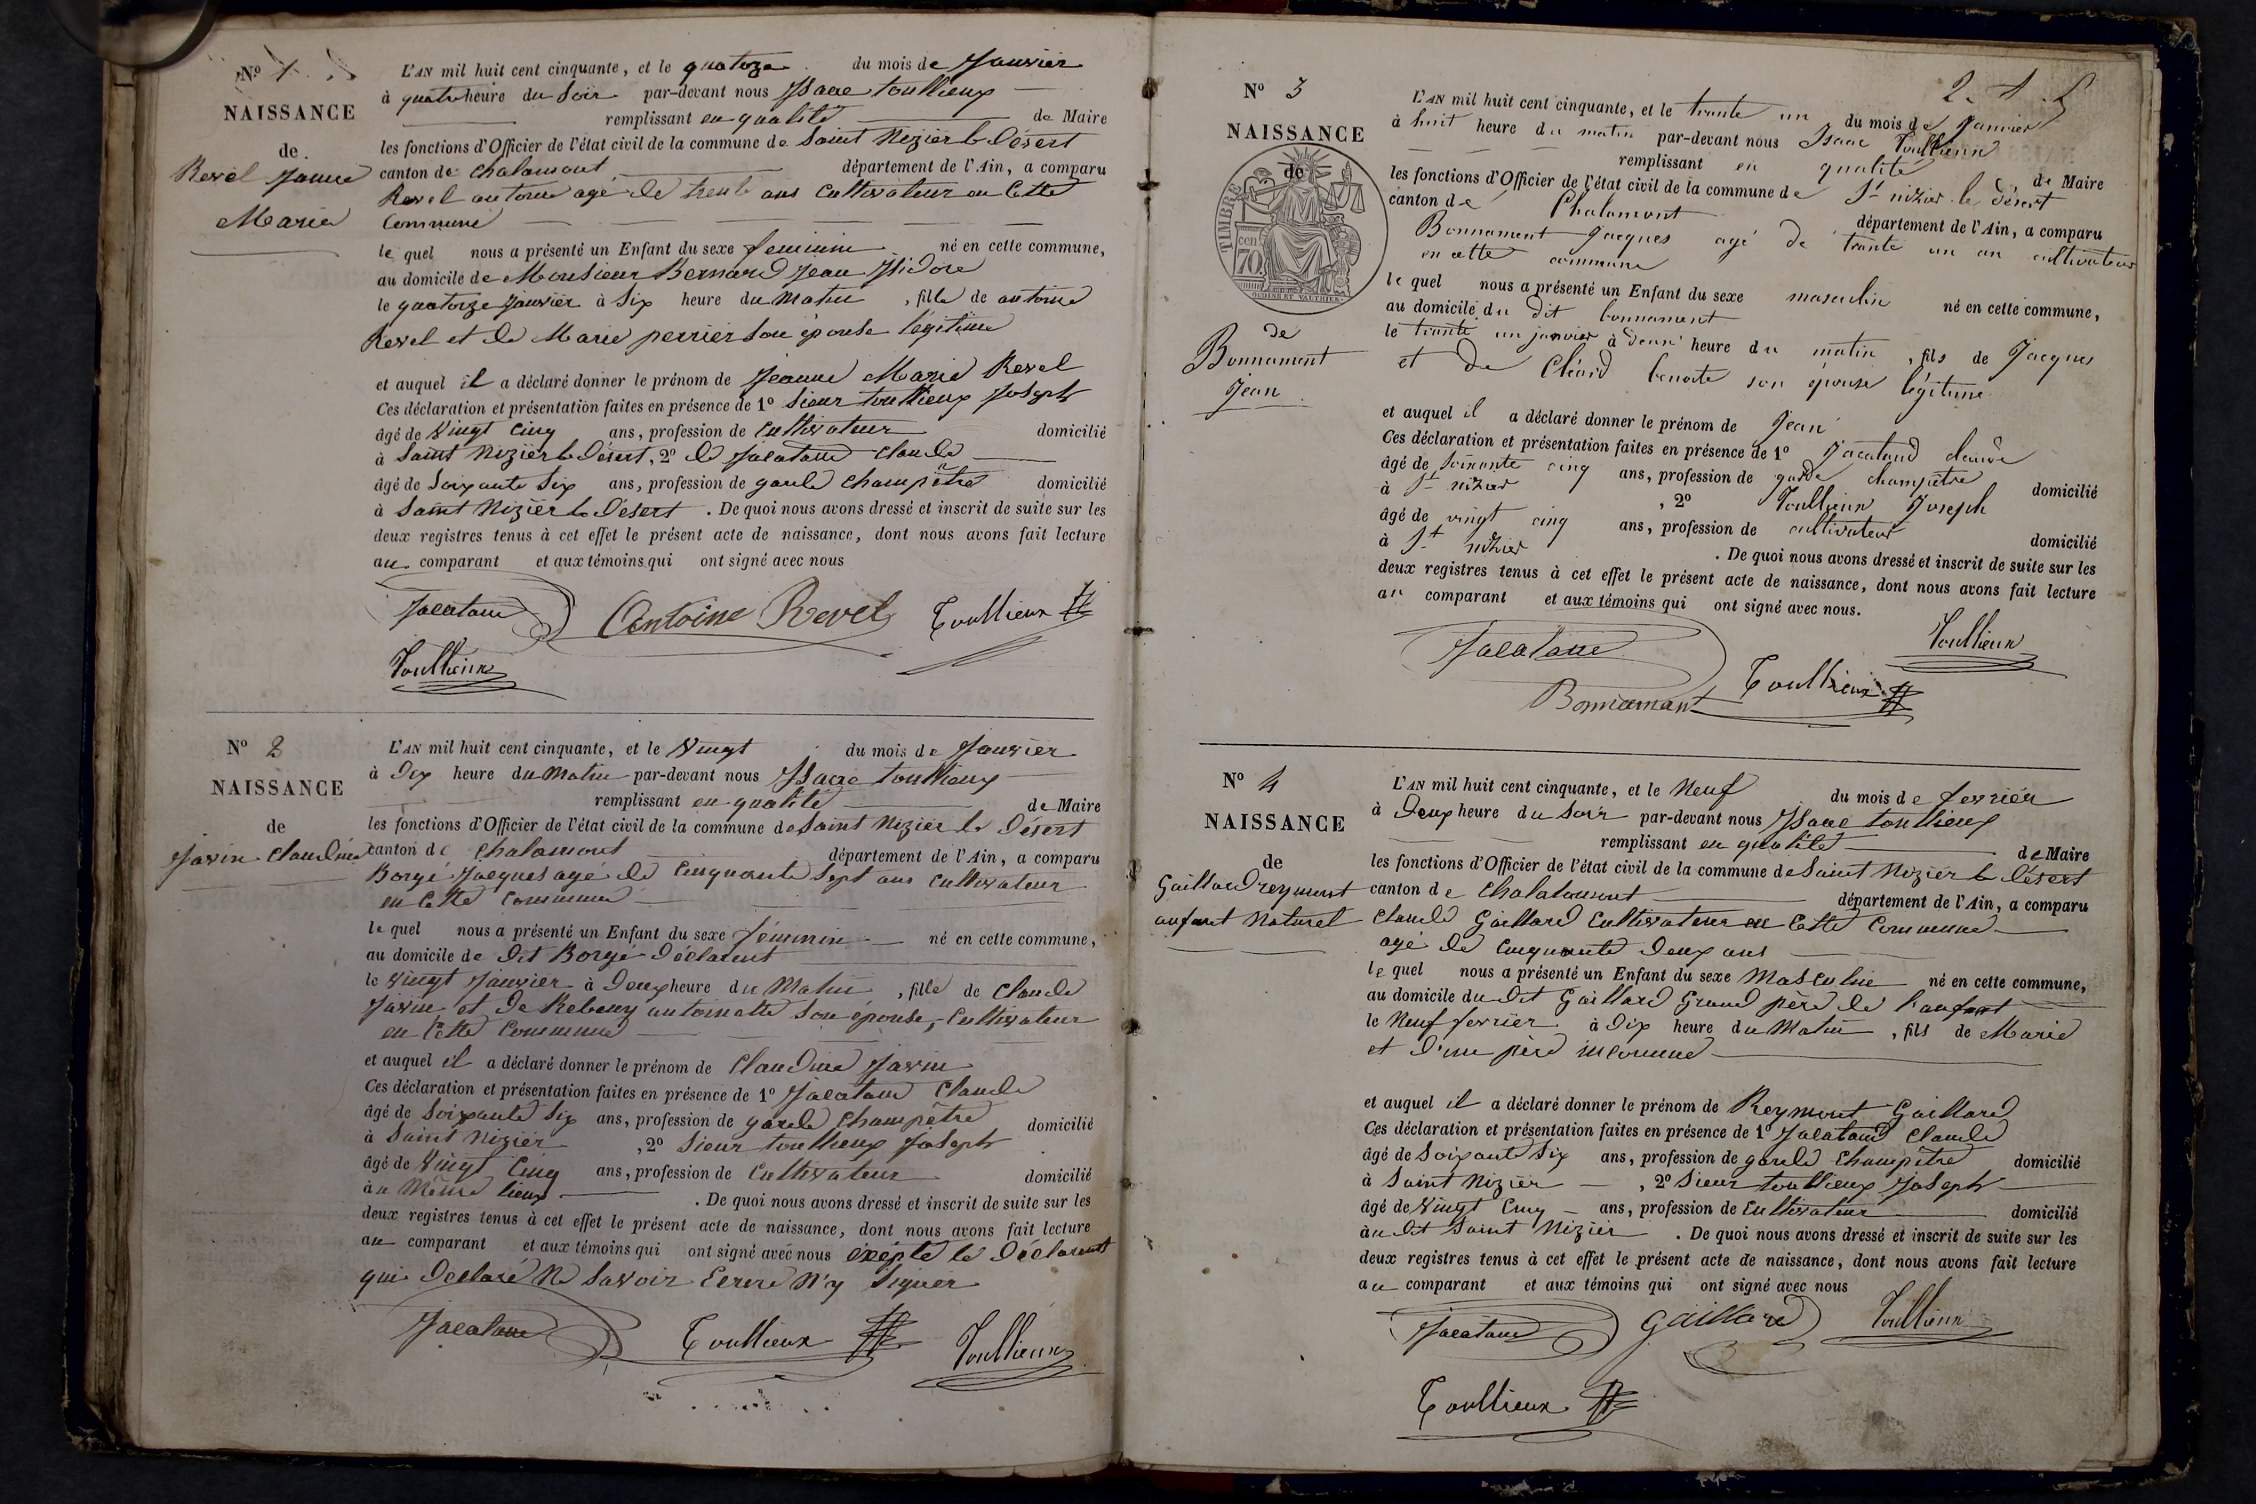 N° 1
NAISSANCE
de
Revel Jeanne
Marie
L'AN mil huit cent cinquante, et le quatorze du mois de Janvier
à quatre heure du Soir par-devant nous Isaac toullieux
remplissant en qualité de Maire
les fonctions d'Officier de l'état civil de la commune de Saint Nizier le Désert
canton de Chalamont département de l'Ain, a comparu
Revel antoine agé de trente ans Cultivateur en Cette
Commune
le quel nous a présenté un Enfant du sexe feminin né en cette commune,
au domicile de Monsieur Bernard Jean Isidore
le quatorze Janvier à Six heure du Matin, fille de antoine
Revel et de Marie perrier son épouse légitime
et auquel il a déclaré donner le prénom de Jeanne Marie Revel
Ces déclaration et présentation faites en présence de 1° Sieur toullieux Joseph
âgé de Vingt Cinq ans, profession de Cultivateur domicilié
à Saint Nizier le Désert, 2° de Jacataud Claude
âgé de Soixante Six ans, profession de garde Champêtre domicilié
à Saint Nizier le Désert. De quoi nous avons dressé et inscrit de suite sur les
deux registres tenus à cet effet le présent acte de naissance, dont nous avons fait lecture
au comparant et aux témoins qui ont signé avec nous
Jacataud Antoine Revel Toullieux
Toullieux
N° 2
NAISSANCE
de
Javin Claudine
L'AN mil huit cent cinquante, et le Vingt du mois de Janvier
à Dix heure du Matin par-devant nous Isaac toullieux
remplissant en qualité de Maire
les fonctions d'Officier de l'état civil de la commune de Saint Nizier le Désert
canton de Chalamont département de l'Ain, a comparu
Borgé Jacques agé de Cinquante Sept ans Cultivateur
en Cette Commune
le quel nous a présenté un Enfant du sexe féminin né en cette commune,
au domicile de Dit Borgé Déclarent
le Vingt Janvier à Deux heure du Matin, fille de Claude
Javin et de Rebouy antoinette Son épouse, Cultivateur
en Cette Commune
et auquel il a déclaré donner le prénom de Claudine Javin
Ces déclaration et présentation faites en présence de 1° Jacataud Claude
âgé de Soixante Six ans, profession de garde Champêtre domicilié
à Saint Nizier, 2° Sieur toullieux Joseph
âgé de Vingt Cinq ans, profession de Cultivateur domicilié
à u Même lieux. De quoi nous avons dressé et inscrit de suite sur les
deux registres tenus à cet effet le présent acte de naissance, dont nous avons fait lecture
au comparant et aux témoins qui ont signé avec nous éxépté le Déclarent
qui Declaré Ne Savoir Ecrire N'y Signer
Jacataud Toullieux Toullieux
2.
N° 3
NAISSANCE
de
TIMBRE
cen
70
de
Bonnament
Jean
L'AN mil huit cent cinquante, et le trante un du mois de Janvier
à huit heure du matin par-devant nous Isaac Toullieux
remplissant en qualité de Maire
les fonctions d'Officier de l'état civil de la commune de St nizier le Désert
canton de Chalamont département de l'Ain, a comparu
Bonnament Jacques agé de trante un an cultivateur
en cette commune
le quel nous a présenté un Enfant du sexe masculin né en cette commune,
au domicile du dit bonnament
le trante un janvier à deux heure du matin, fils de Jacques
et de Chérd benoite son épouse légitime
et auquel il a déclaré donner le prénom de Jean
Ces déclaration et présentation faites en présence de 1° Jacataud claude
âgé de soixante cinq ans, profession de garde champêtre domicilié
à St nizier, 2° Toullieux Joseph
âgé de vingt cinq ans, profession de cultivateur domicilié
à St nizier. De quoi nous avons dressé et inscrit de suite sur les
deux registres tenus à cet effet le présent acte de naissance, dont nous avons fait lecture
au comparant et aux témoins qui ont signé avec nous.
Jacataud Toullieux
Bonnamant Toullieux
N° 4
NAISSANCE
de
Gaillard reymont
anfant Naturel
L'AN mil huit cent cinquante, et le Neuf du mois de fevrier
à Deux heure du Soir par-devant nous Isaac toullieux
remplissant en qualité de Maire
les fonctions d'Officier de l'état civil de la commune de Saint Nizier le Désert
canton de Chalatomont département de l'Ain, a comparu
Claude Gaillard Cultivateur en Cette Commune
agé de Cinquante Deux ans
le quel nous a présenté un Enfant du sexe Masculin né en cette commune,
au domicile du Dit Gaillard Grand père de l'anfant
le Neuf fevrier à Dix heure du Matin, fils de Marie
et D'un père inconnue
et auquel il a déclaré donner le prénom de Reymont Gaillard
Ces déclaration et présentation faites en présence de 1° Jacataud Claude
âgé de Soixante Six ans, profession de garde Champêtre domicilié
à Saint Nizier, 2° Sieur toullieux Joseph
âgé de Vingt Cinq ans, profession de Cultivateur domicilié
à u Dit Saint Nizier. De quoi nous avons dressé et inscrit de suite sur les
deux registres tenus à cet effet le présent acte de naissance, dont nous avons fait lecture
au comparant et aux témoins qui ont signé avec nous
Jacataud Gaillard Toullieux
Toullieux